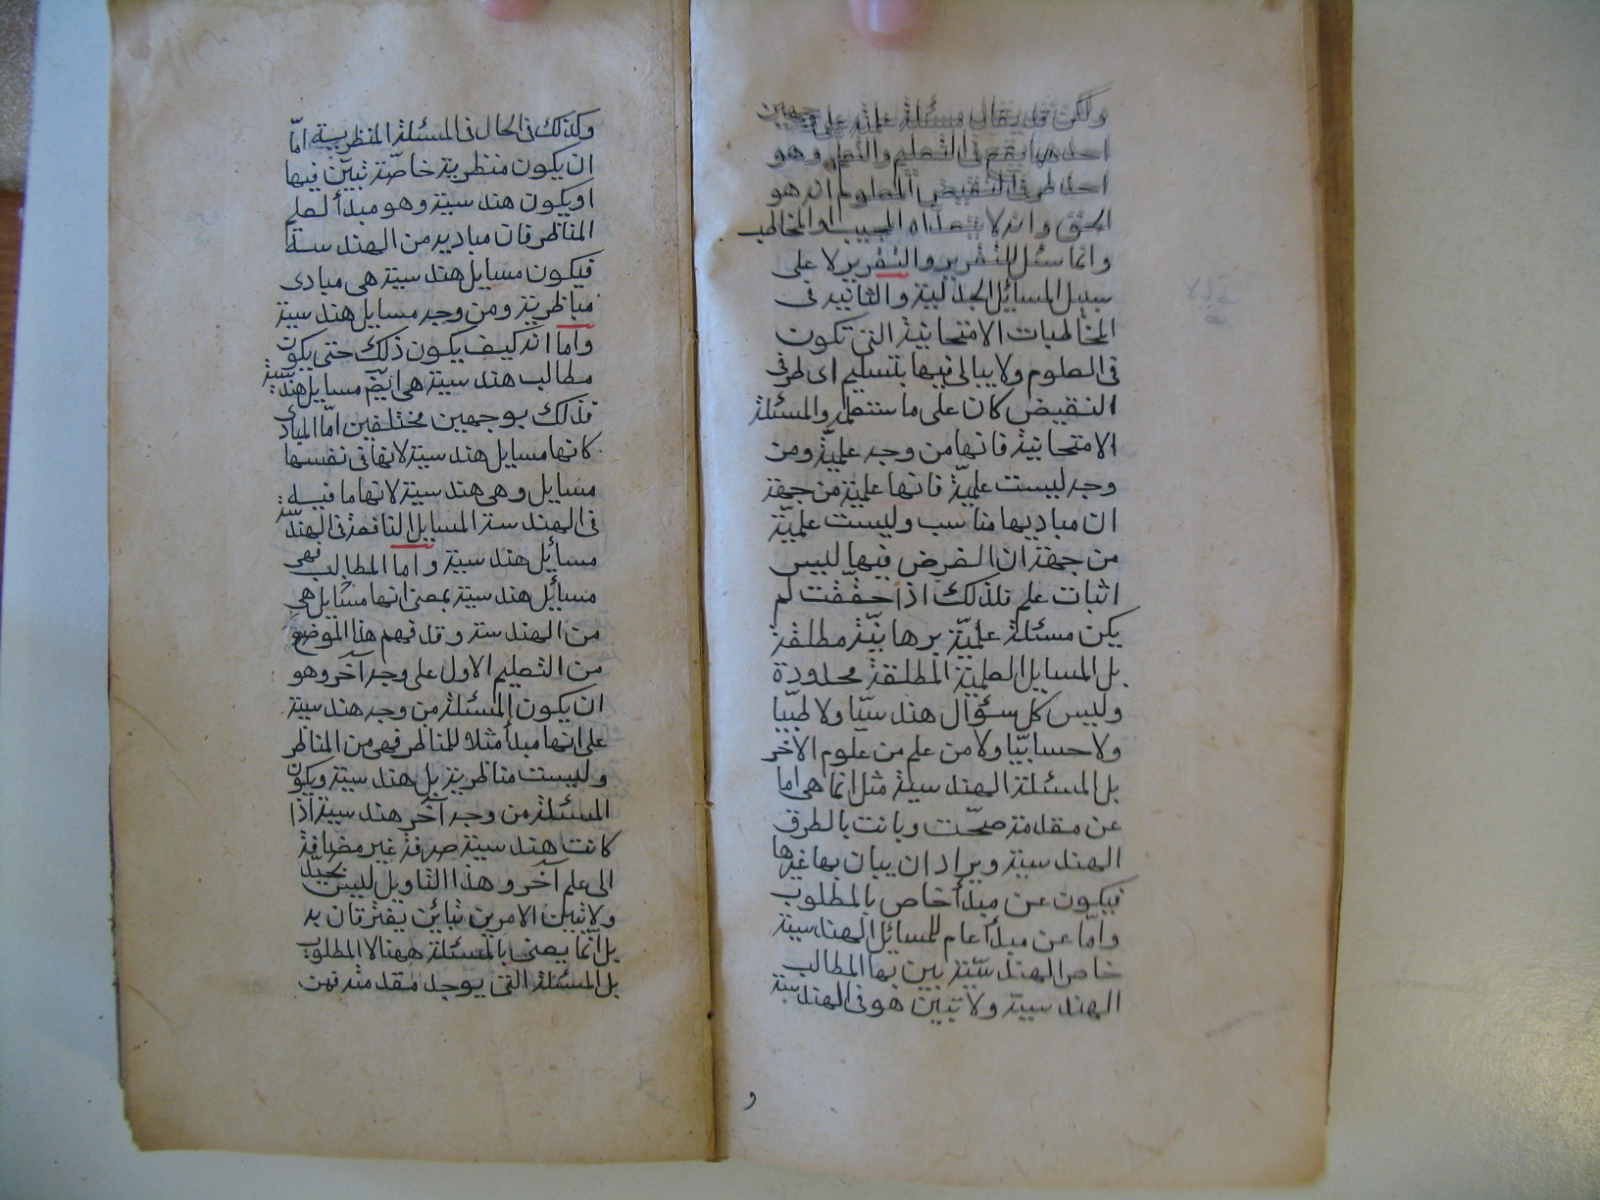 ولكن قد يقال مسئلة علمية على وجهين
احدهما يقع فى التعليم والتعلم وهو
احد طرفى النقيض المعلوم انه هو
الحق وانه لا يتعداه المجيب المخاطب
وانما سئل للتقرير والتقرير لا على
سبيل المسايل الجدلية والثانيه فى
المخاطبات الامتحانية التى تكون
فى العلوم ولا يبالى فيها بتسليم اى طرفى
النقيض كان على ما ستعلمه والمسئلة
الامتحانية فانها من وجه علميّة ومن
وجه ليست علميّة فانها علميّة من جهة
ان مباديها مناسب وليست علميّة
من جهة ان الغرض فيها ليس
اثبات علم فلذلك اذا حقّقت لم
يكن مسئلة علميّة برهانيّة مطلقة
بل المسايل العلميّة المطلقة محدودة
وليس كل سؤال هندسيّا ولا طبيّا
ولا حسابيّا ولا من علم من علوم الاخر
بل المسئلة الهندسية مثل انما هى اما
عن مقدمة صحّت وبانت بالطرق
الهندسية ويراد ان يبان بها غيرها
فيكون عن مبدأ خاص بالمطلوب
وامّا عن مبدأ عام للمسائل الهندسية
خاص الهندسيّة يبين بها المطالب
الهندسية ولا تبيّن هو فى الهندسية
و
وكذلك فى الحال فى المسئلة المنظرية امّا
ان يكون منظرية خاصّة تبيّن فيها
او يكون هندسية وهو مبدأ لعلم
المناظر فان مباديه من الهندسة
فيكون مسايل هندسية هى مبادى
مناظرية ومن وجه مسايل هندسية
واما انه كيف يكون ذلك حتى يكون
مطالب هندسية هى ايضم مسايل هندسية
فذلك بوجهين مختلفين امّا المبادى
كانها مسايل هندسية لانها فى نفسها
مسايل وهى هندسية لانها ما فيه
فى الهندسة المسايل النافعة فى الهندسة
مسائل هندسية واما المطالب فهى
مسائل هندسية بمعنى انها مسايل هى
من الهندسة وقد فهم هذا الموضع
من التعليم الاول على وجه آخر وهو
ان يكون المسئلة من وجه هندسية
على انها مبدأ مثلا للمناظر فهى من المناظر
وليست مناظرية بل هندسية ويكون
المسئلة من وجه آخر هندسية اذا
كانت هندسية صرفة غير مضافة
الى علم آخر وهذا التاويل ليس بجيّد
ولا تبين الامرين تبائن يفترقان به
بل انّما يعنى بالمسئلة ههنا لا المطلوب
بل المسئلة التى يوجد مقدمته فمن